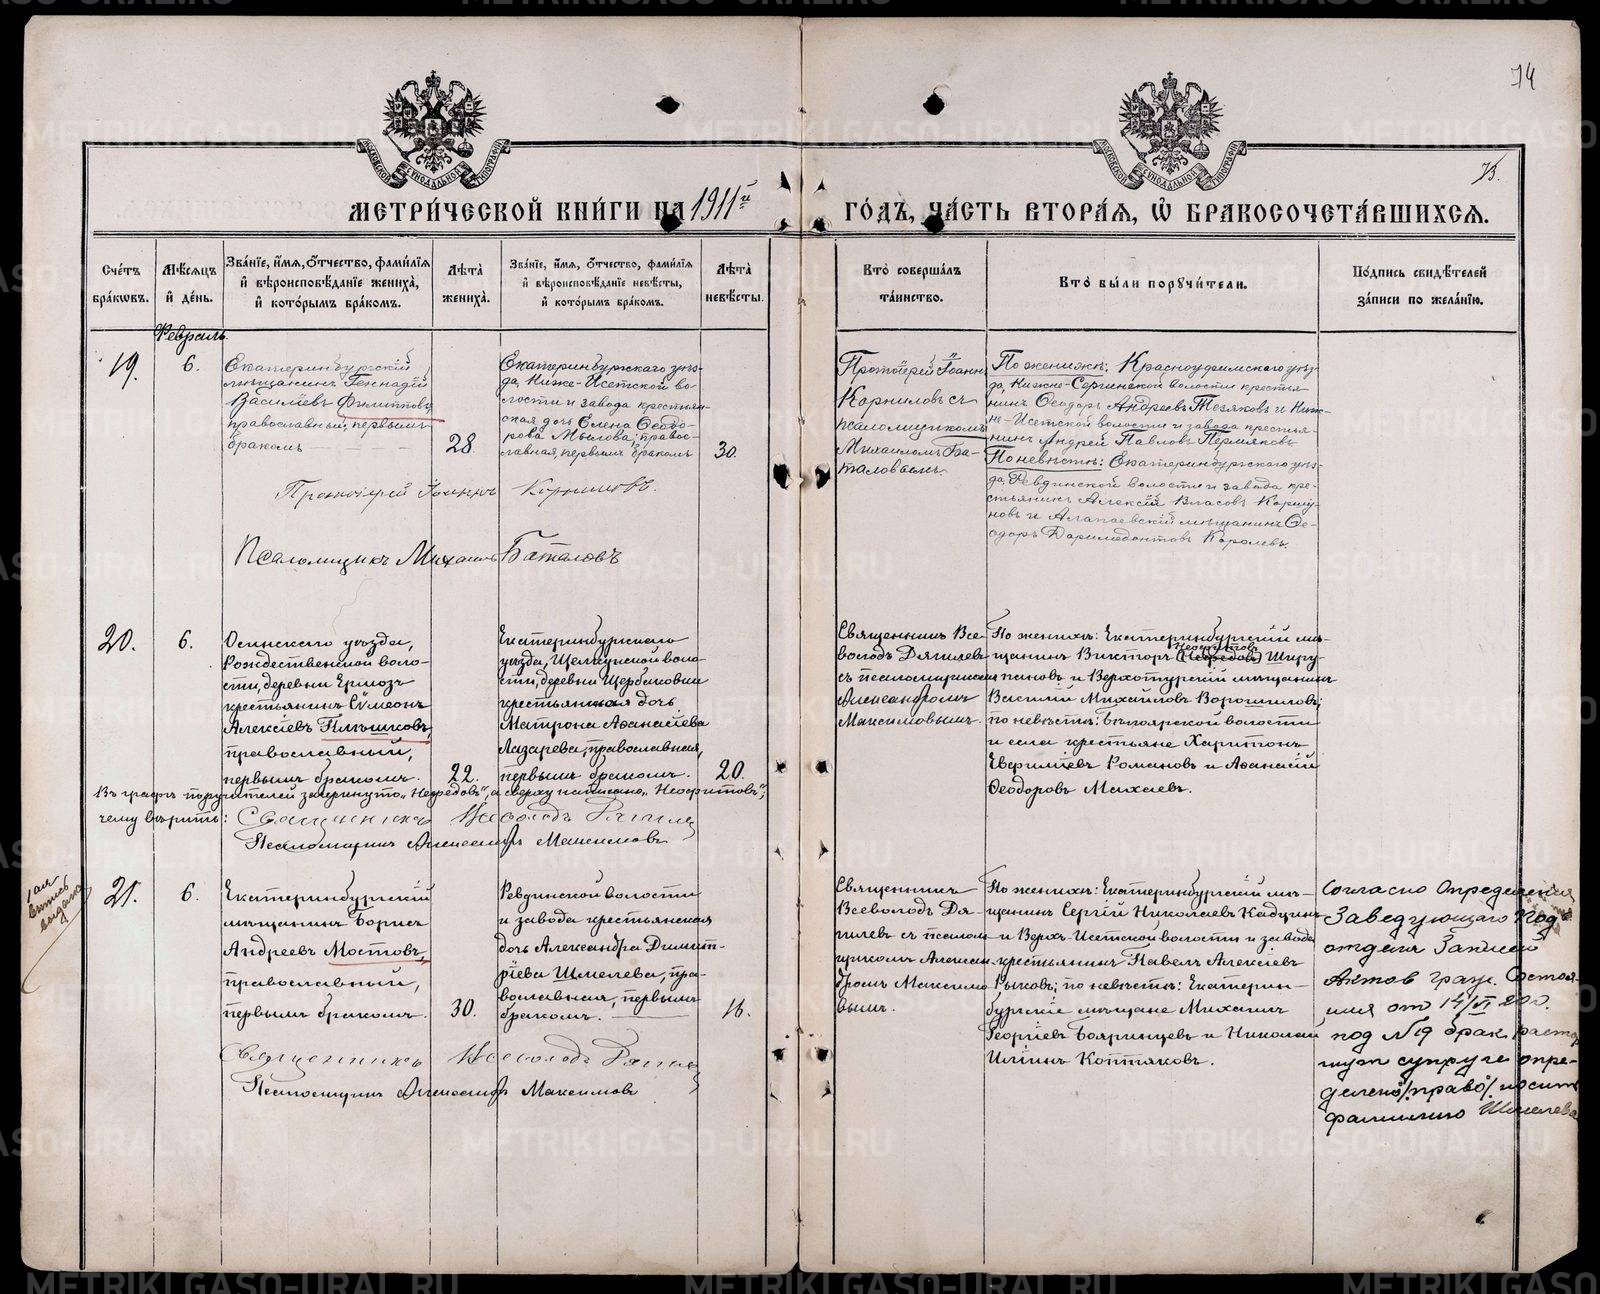 74
75.
МОСКОВСКОЙ СѴНОДАЛЬНОЙ ТИПОГРАФІИ
МОСКОВСКОЙ СѴНОДАЛЬНОЙ ТИПОГРАФІИ
МЕТРИ́ЧЕСКОЙ КНИ́ГИ НА 1911й ГО́ДЪ, ЧА́СТЬ ВТОРА́Я, Ѡ БРАКОСОЧЕТА́ВШИХСЯ.
Сче́тъ бра́кѡвъ.
Мѣ́сяцъ и де́нь.
Зва́нїе, и́мя, о́тчество, фами́лїя и вѣроисповѣ́данїе жениха̀, и кото́рымъ бра́комъ.
Лѣ́та жениха̀.
Зва́нїе, и́мя, о́тчество, фами́лїя и вѣроисповѣ́данїе невѣ́сты, и кото́рымъ бра́комъ.
Лѣ́та невѣ́сты.
Кто̀ соверша́лъ та́инство.
Кто̀ бы́ли порꙋчи́тели.
По́дпись свидѣ́телей за́писи по жела́нїю.
Февраль.
19.
6.
Екатеринбургскій
мѣщанинъ Геннадій
Васильевъ Филипповъ,
православный, первымъ
бракомъ
28.
Екатеринбургскаго уѣз-
да, Ниже-Исетской во-
лости и завода крестьян-
ская дочь Елена Ѳеодо-
рова Мылова, право-
славная, первымъ бракомъ
30.
Протоіерей Іоаннъ
Корниловъ съ
псаломщикомъ
Михаиломъ Ба-
таловымъ.
По женихѣ: Красноуфимскаго уѣз-
да, Нижне-Сергинской волости крестья-
нинъ Ѳеодоръ Андреевъ Тезяковъ и Ниж-
не-Исетской волости и завода крестья-
нинъ Андрей Павловъ Пермяковъ
По невѣстѣ: Екатеринбургскаго уѣз-
да, Ревдинской волости и завода кре-
стьянинъ Алексій Власовъ Коршу-
новъ и Алапаевскій мѣщанинъ Ѳе-
одоръ Королевъ.
Протоіерей Іоаннъ Корниловъ.
Псаломщикъ Михаилъ Баталовъ
20.
6.
Осинскаго уѣзда,
Рождественской воло-
сти, деревни Ермозъ
крестьянинъ Сѵмеонъ
Алексіевъ
православный,
первымъ бракомъ.
22.
Екатеринбургскаго
уѣзда, Щелкунской воло-
сти, деревни Щербаковки
крестьянская дочь
Матрона Аѳанасіева
Лазарева, православная,
первымъ бракомъ.
20.
Священникъ Все-
володъ Дягилевъ
съ псаломщикомъ
Александромъ
Максимовымъ.
По женихѣ: Екатеринбургскій мѣ-
Неофитовъ
щанинъ Викторъ (Нефедовъ) Ширу-
пановъ и Верхотурскій мѣщанинъ
Василій Михайловъ Ворошиловъ;
по невѣстѣ: Бѣлоярской волости
и села крестьяне Харитонъ
Романовъ и Аѳанасій
Ѳеодоровъ Михаевъ.
Въ графѣ поручителей зачеркнуто „Нефедовъ“, а сверху написано „Неофитовъ“;
чему вѣрить: Священникъ Всеволодъ Дягилевъ
Псаломщикъ Александръ Максимовъ
1 ая
выпись
выдана
21.
6.
Екатеринбургскій
мѣщанинъ Борисъ
Андреевъ Мостовъ,
православный,
первымъ бракомъ.
30.
Ревдинской волости
и завода крестьянская
дочь Александра Димит-
ріева Шмелева, пра-
вославная, первымъ
бракомъ.
16.
Священникъ
Всеволодъ Дя-
гилевъ съ псалом-
щикомъ Алексан-
дромъ Максимо-
вымъ.
По женихѣ: Екатеринбургскій мѣ-
щанинъ Сергій Николаевъ Кадцынъ
и Верхъ-Исетской волости и завода
крестьянинъ Павелъ Алексіевъ
Рыковъ; по невѣстѣ: Екатерин-
бургскіе мѣщане Михаилъ
Георгіевъ Бояринцевъ и Николай
Ильинъ Коптяковъ.
Согласно Определения
Заведующаго Под-
отдела Записей
Актов граж. Состоя-
ния от 14/VI 20 г.
под №19 брак растор-
гнут супруги опре-
делено право носить
фамилию Шмелева
Священникъ Всеволодъ Дягилевъ
Псаломщикъ Александръ Максимовъ
METRIKI.GASO-URAL.RU